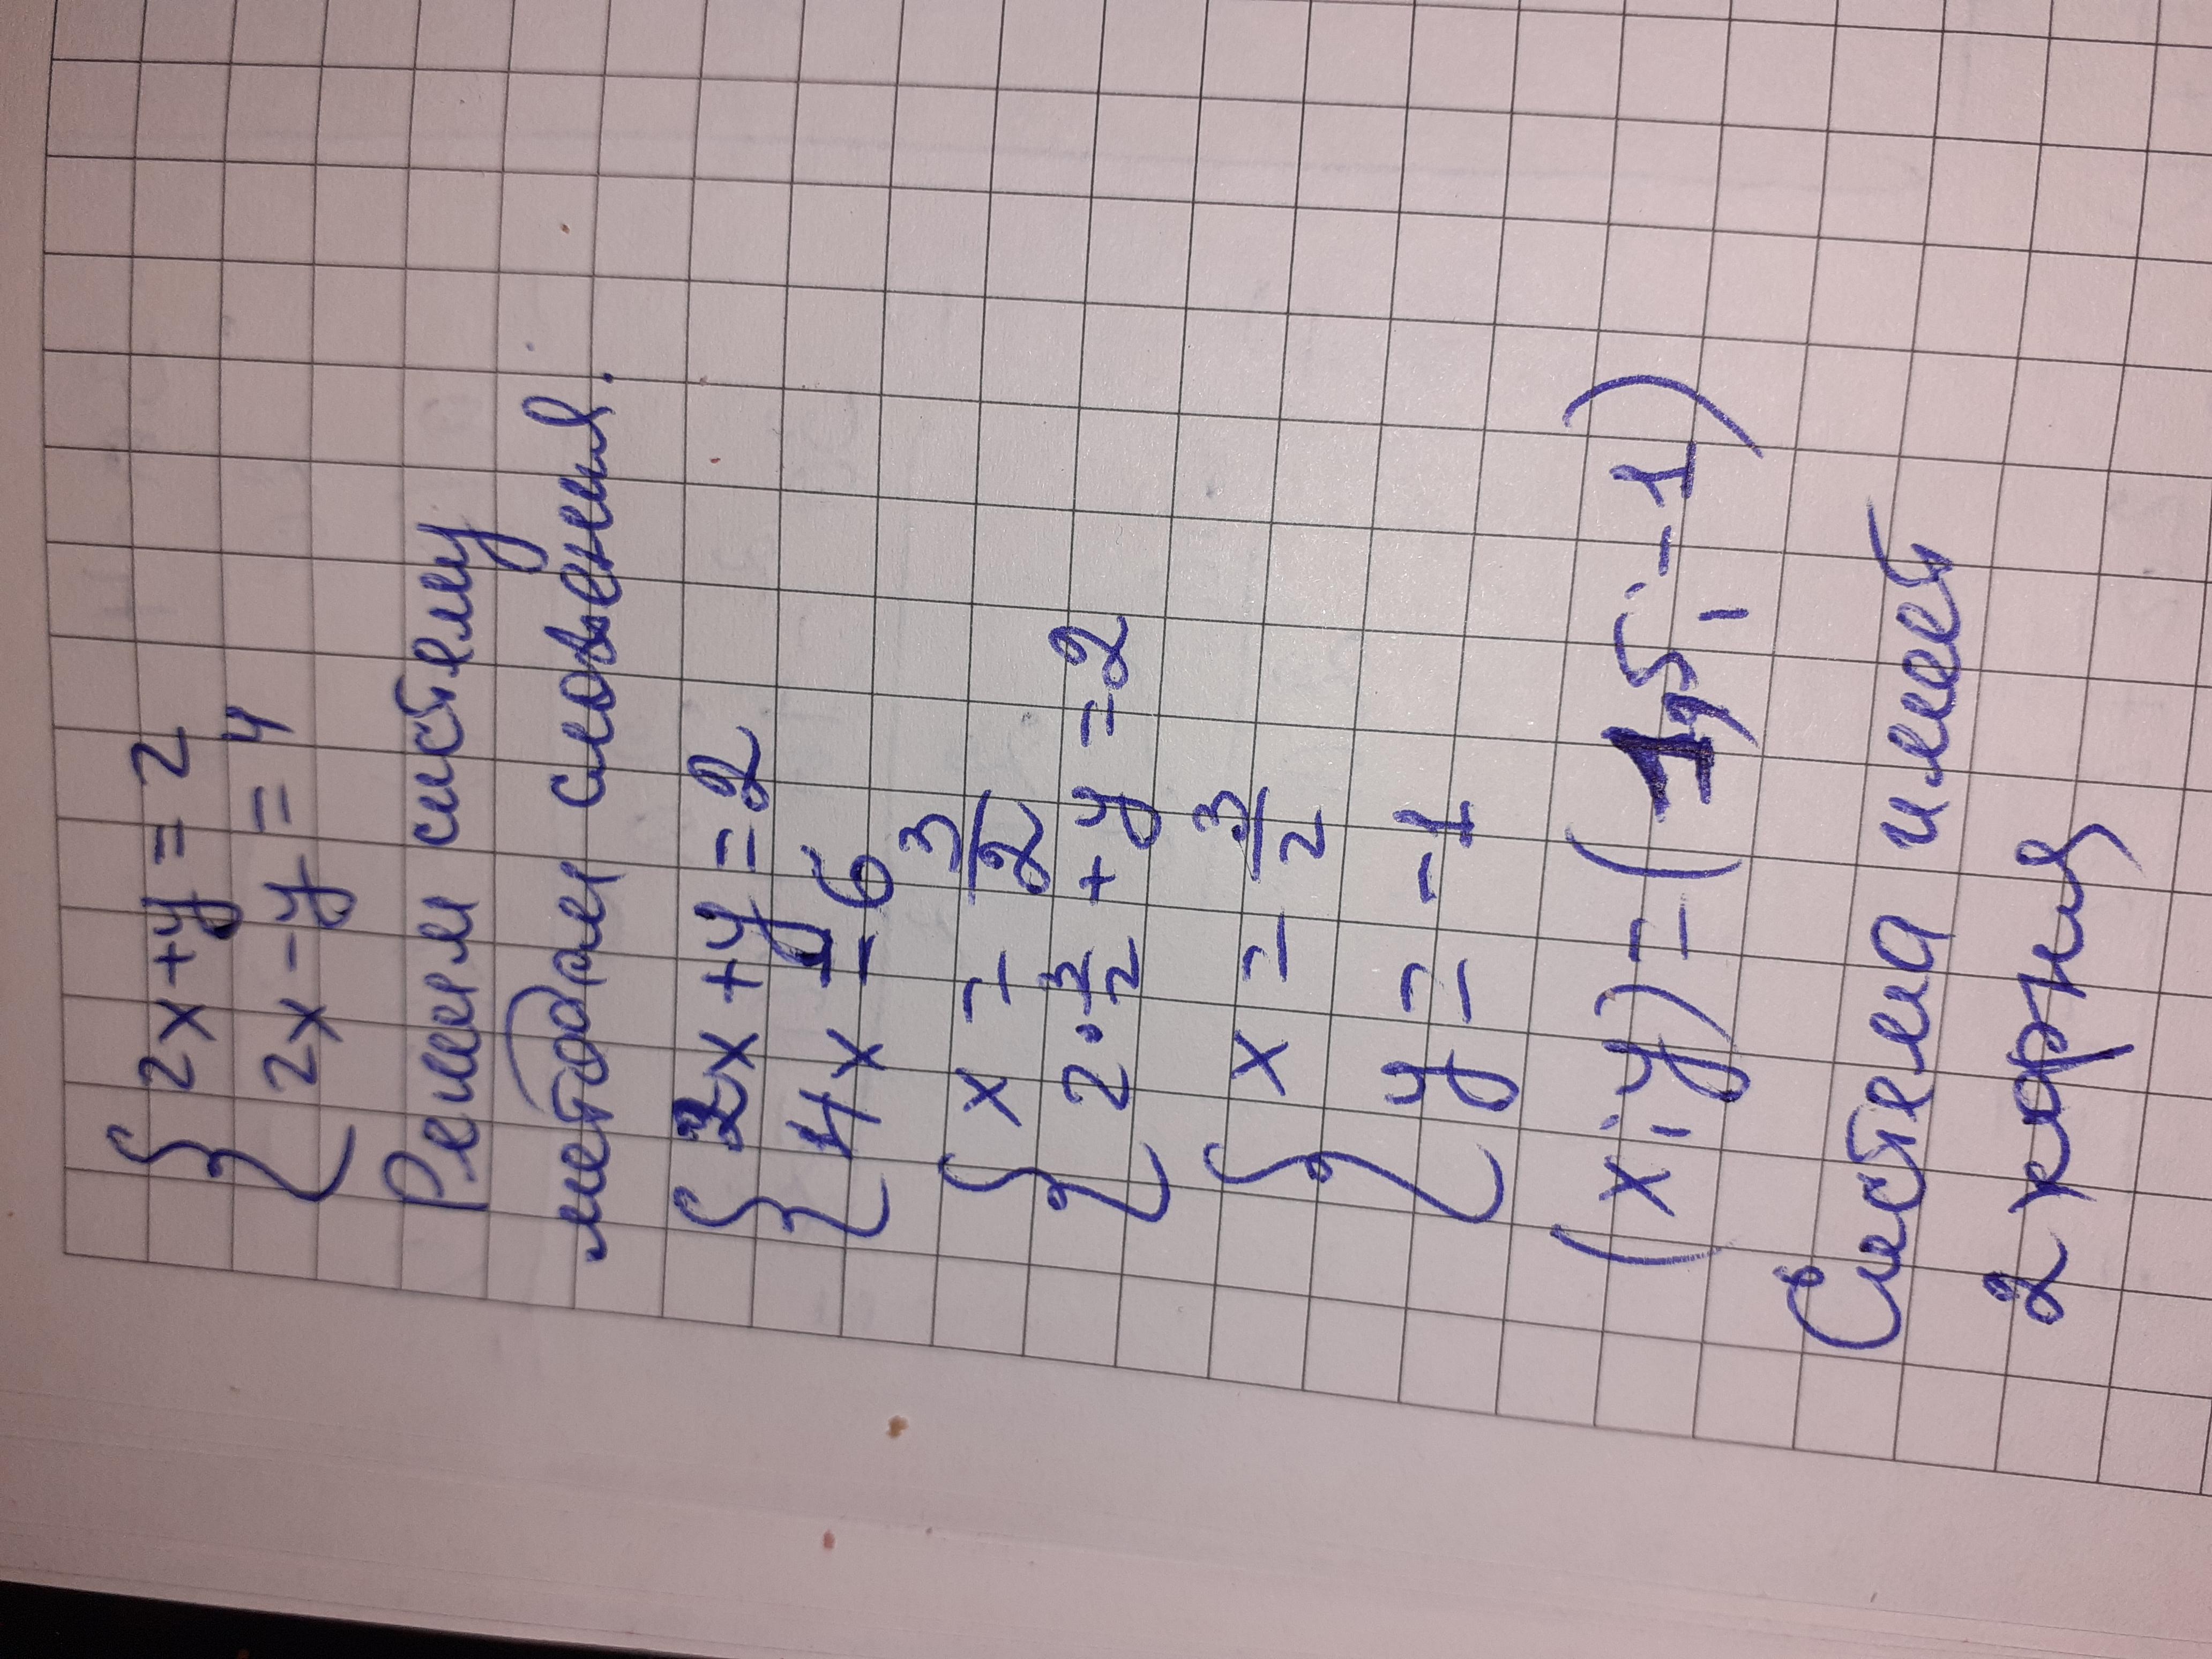 { 2x+y=2
2x-y=4
Решим систему
методом сложения.
{ 2x+y=2
4x=6
{ x=3/2
2·3/2+y=2
{ x=3/2
y=-1
(x;y)=(1,5;-1)
Система имеет
2 корня